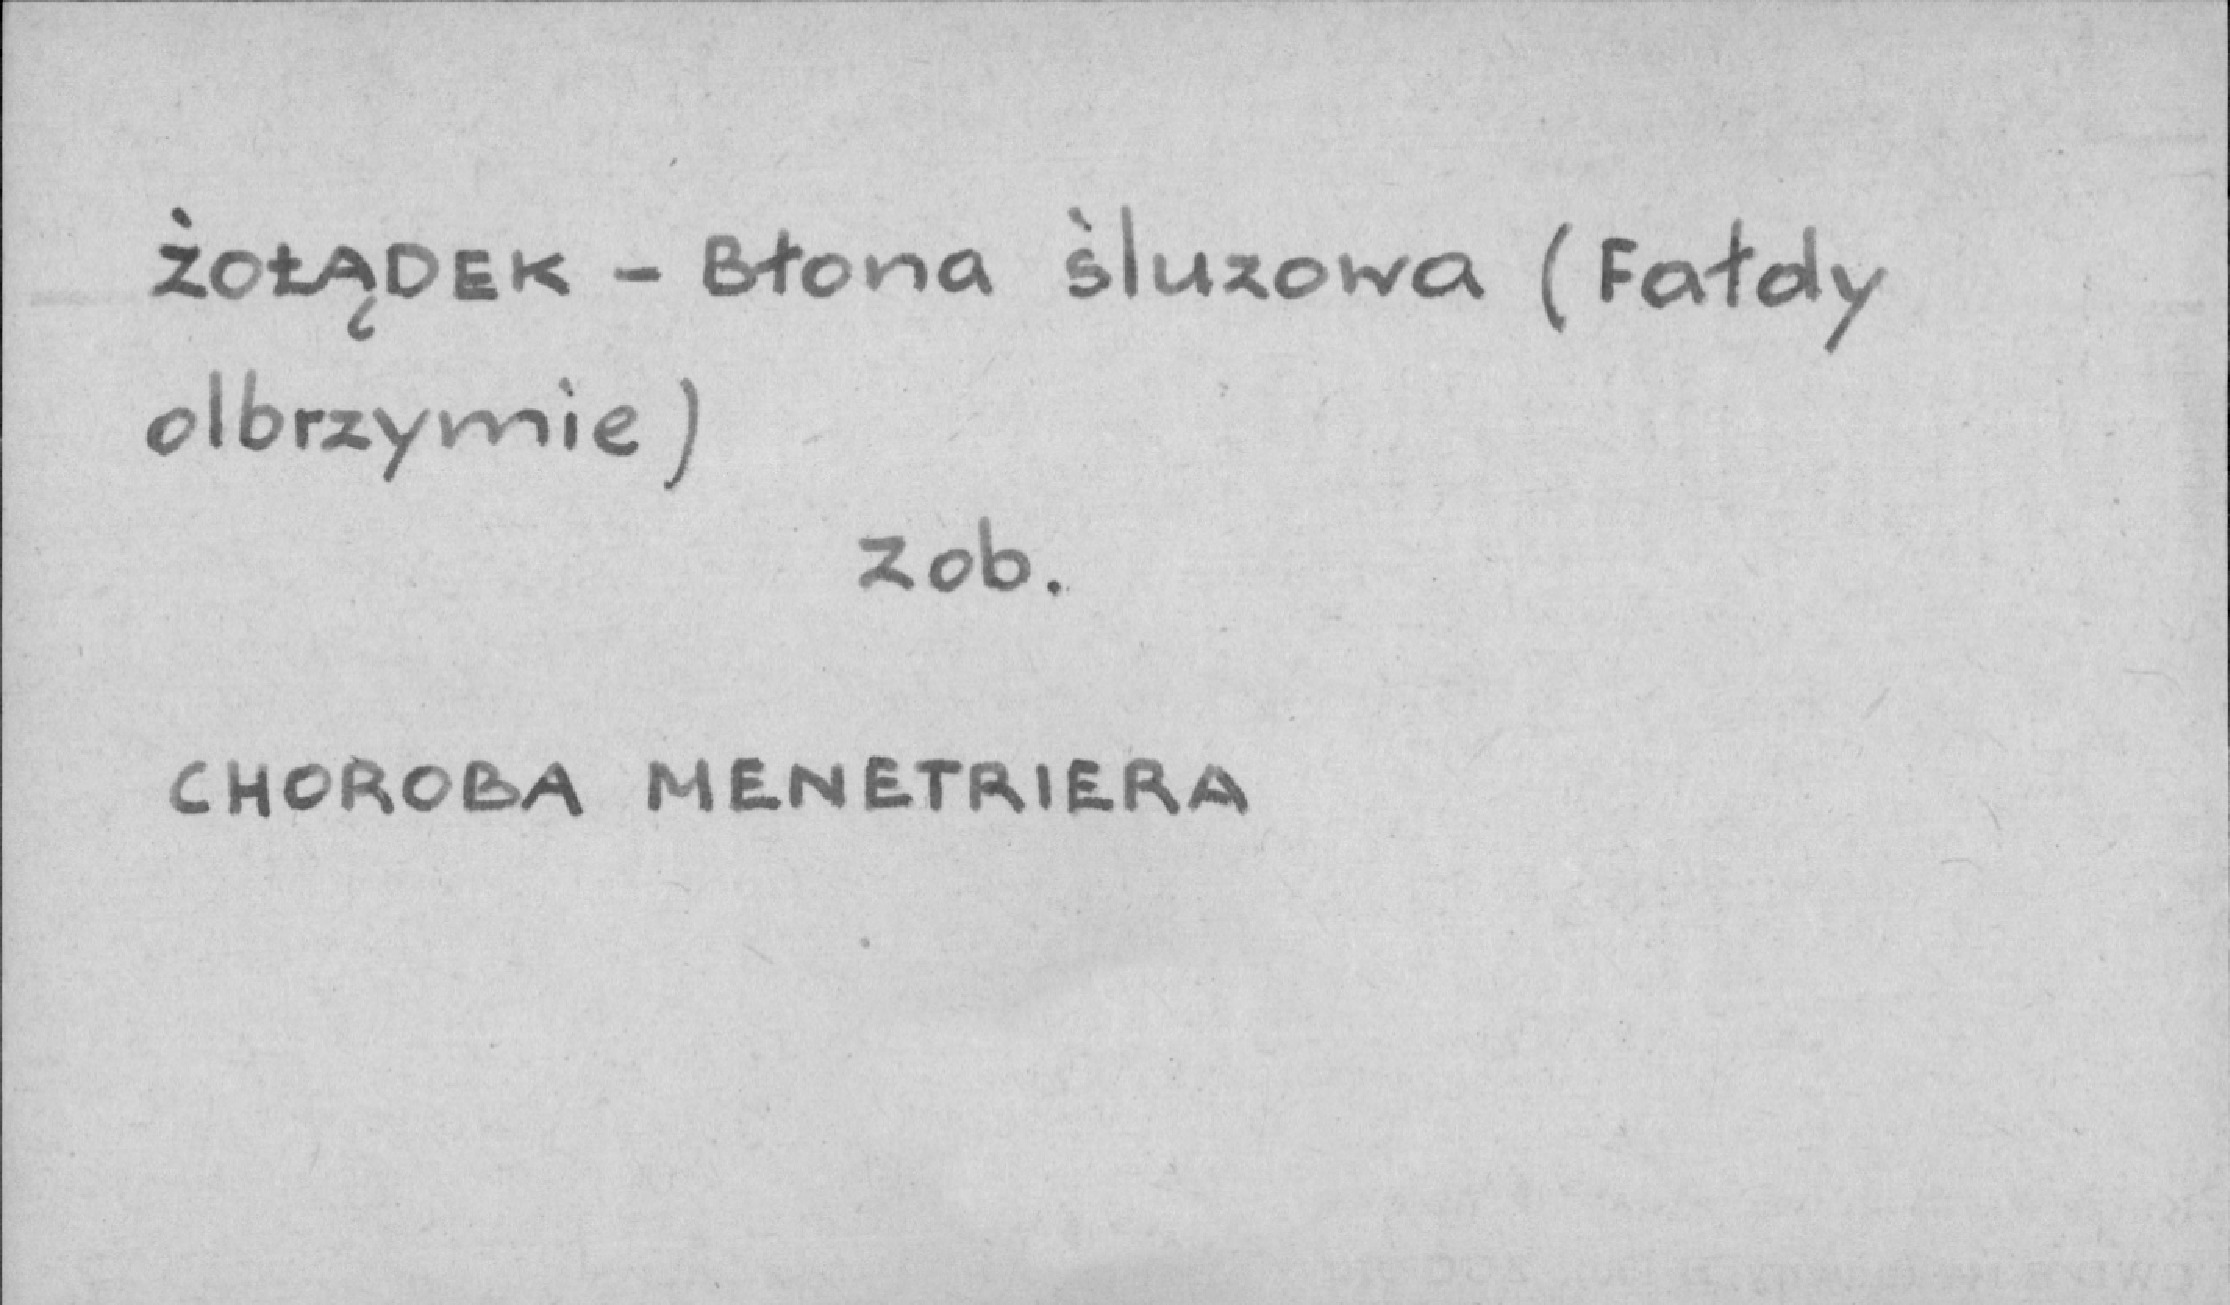 ŻOŁĄDEK - Błona śluzowa (Fałdy
olbrzymie)
zob.
CHOROBA MENETRIERA